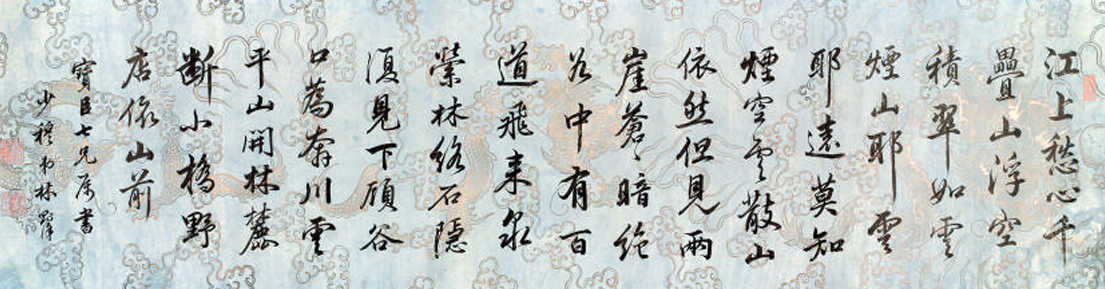 江上愁心千
疊山浮空
積翠如雲
煙山耶雲
耶遠莫知
煙空雲散山
依然但見兩
崖蒼〻暗絕
谷中有百
道飛来泉
縈林絡石隱
復見下顧谷
口為奔川雲
平山開林麓
斷小橋野
店依山前
寶臣七兄屬書
少穆弟林則徐